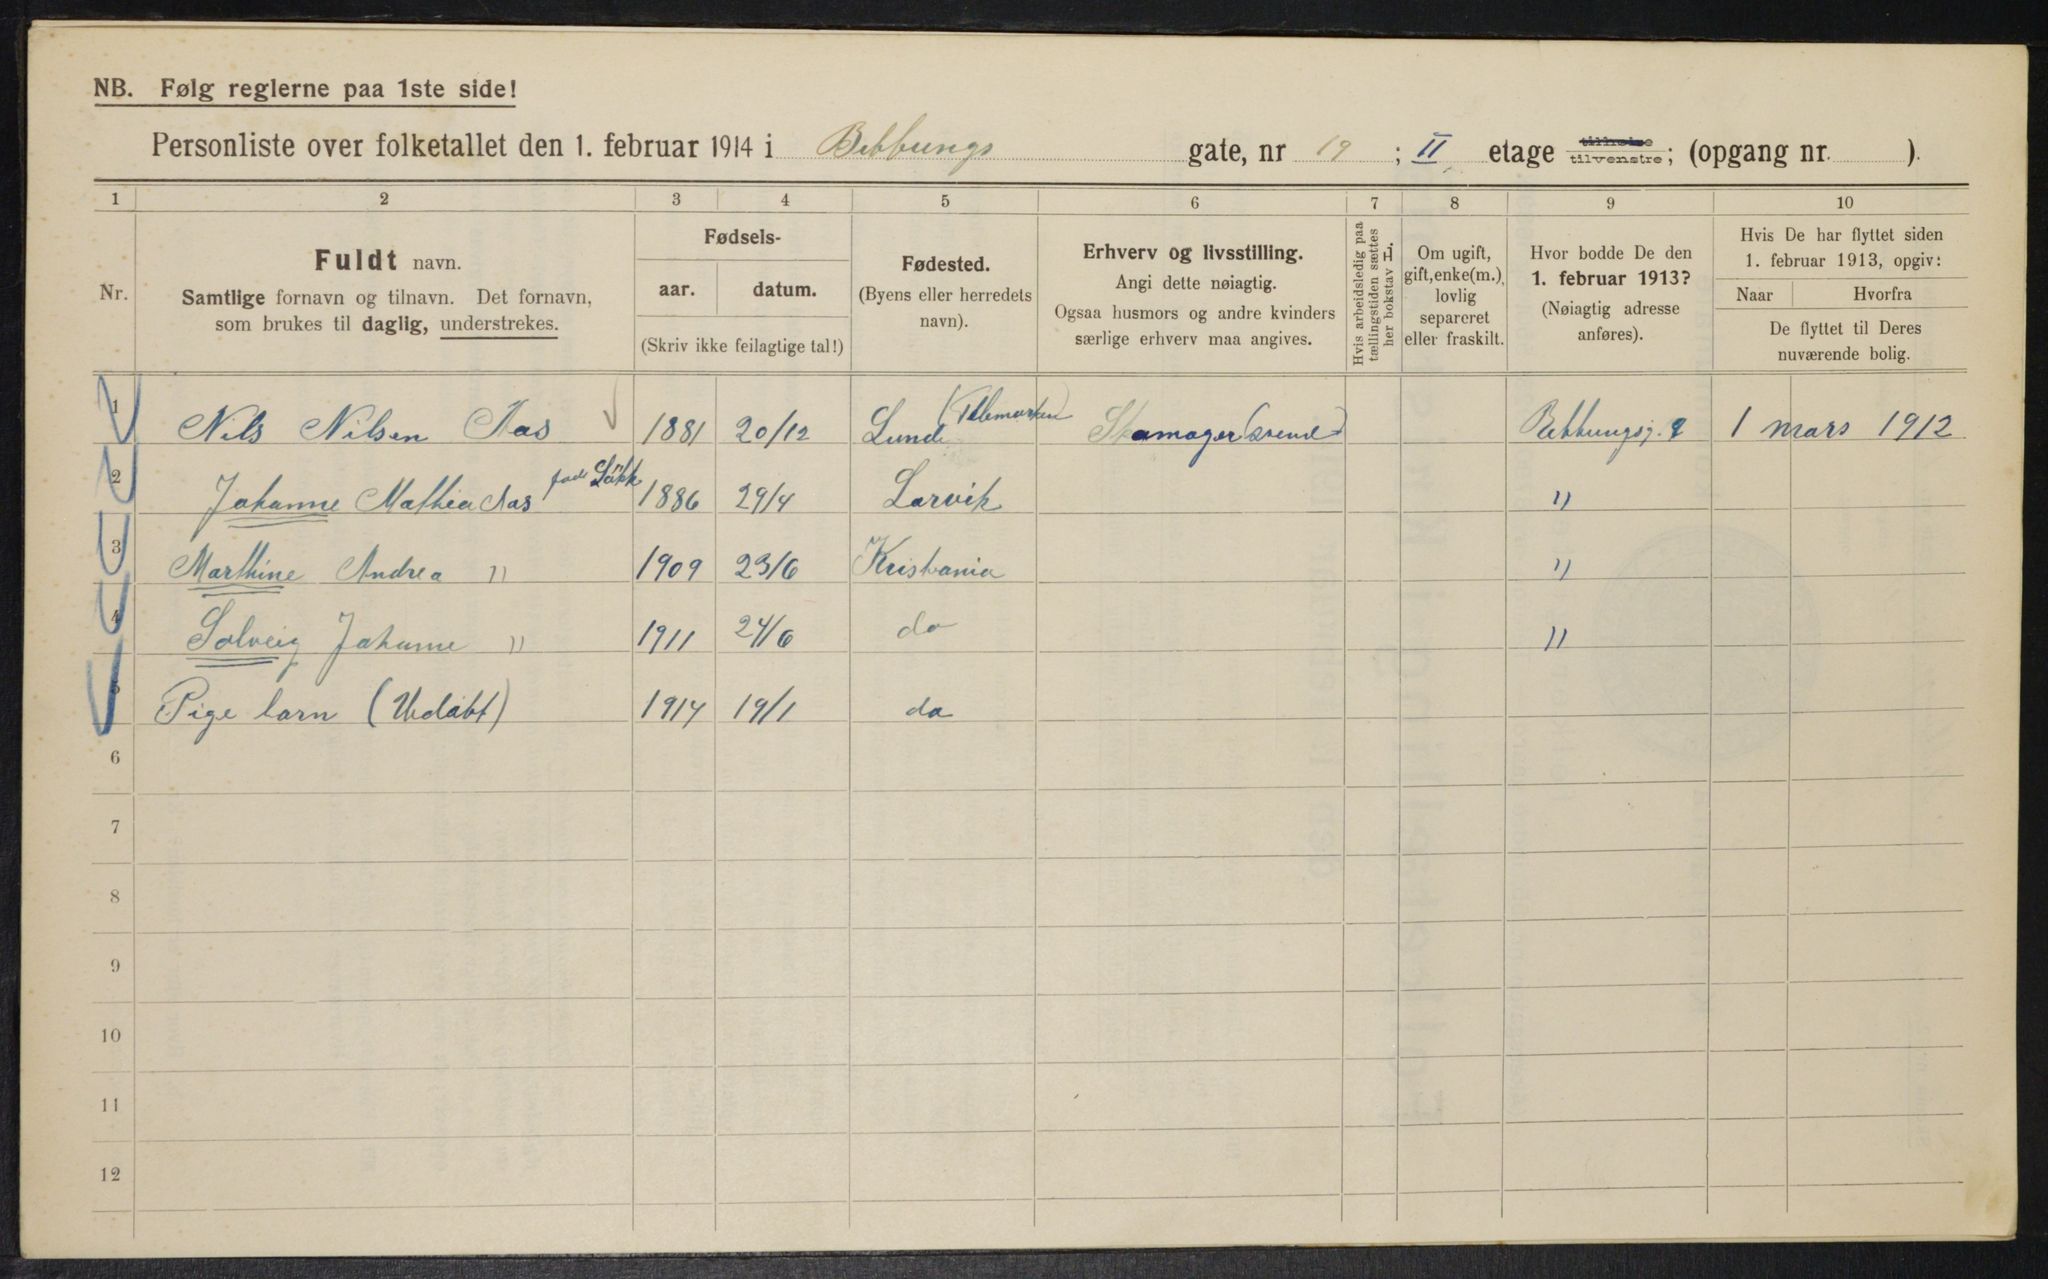 NB. Følg reglerne paa 1ste side!
Personliste over folketallet den 1. februar 1914 i Bebbungs gate, nr 19 ; II etage tilhøire tilvenstre; (opgang nr. ).
1 2 3 4 5 6 7 8 9 10
Nr.
Fuldt navn.
Samtlige fornavn og tilnavn. Det fornavn,
som brukes til daglig, understrekes.
Fødsels-
aar. datum.
(Skriv ikke feilagtige tal!)
Fødested.
(Byens eller herredets
navn).
Erhverv og livsstilling.
Angi dette nøiagtig.
Ogsaa husmors og andre kvinders
særlige erhverv maa angives.
Hvis arbeidsledig paa
tællingstiden sættes
her bokstav L.
Om ugift,
gift, enke(m.),
lovlig
separeret
eller fraskilt.
Hvor bodde De den
1. februar 1913?
(Nøiagtig adresse
anføres).
Hvis De har flyttet siden
1. februar 1913, opgiv:
Naar Hvorfra
De flyttet til Deres
nuværende bolig.
1 Nils Nilsen Aas 1881 20/12 Lunde (Telemarken) Skomager (svend) Bebbungsg. 1 mars 1912
2 Johanne Mathea Aas født Løkk 1886 29/4 Larvik "
3 Marthine Andrea " 1909 23/6 Kristiania "
4 Solveig Johanne " 1911 24/6 do "
5 Pige barn (Udøbt) 1914 19/1 do
6
7
8
9
10
11
12